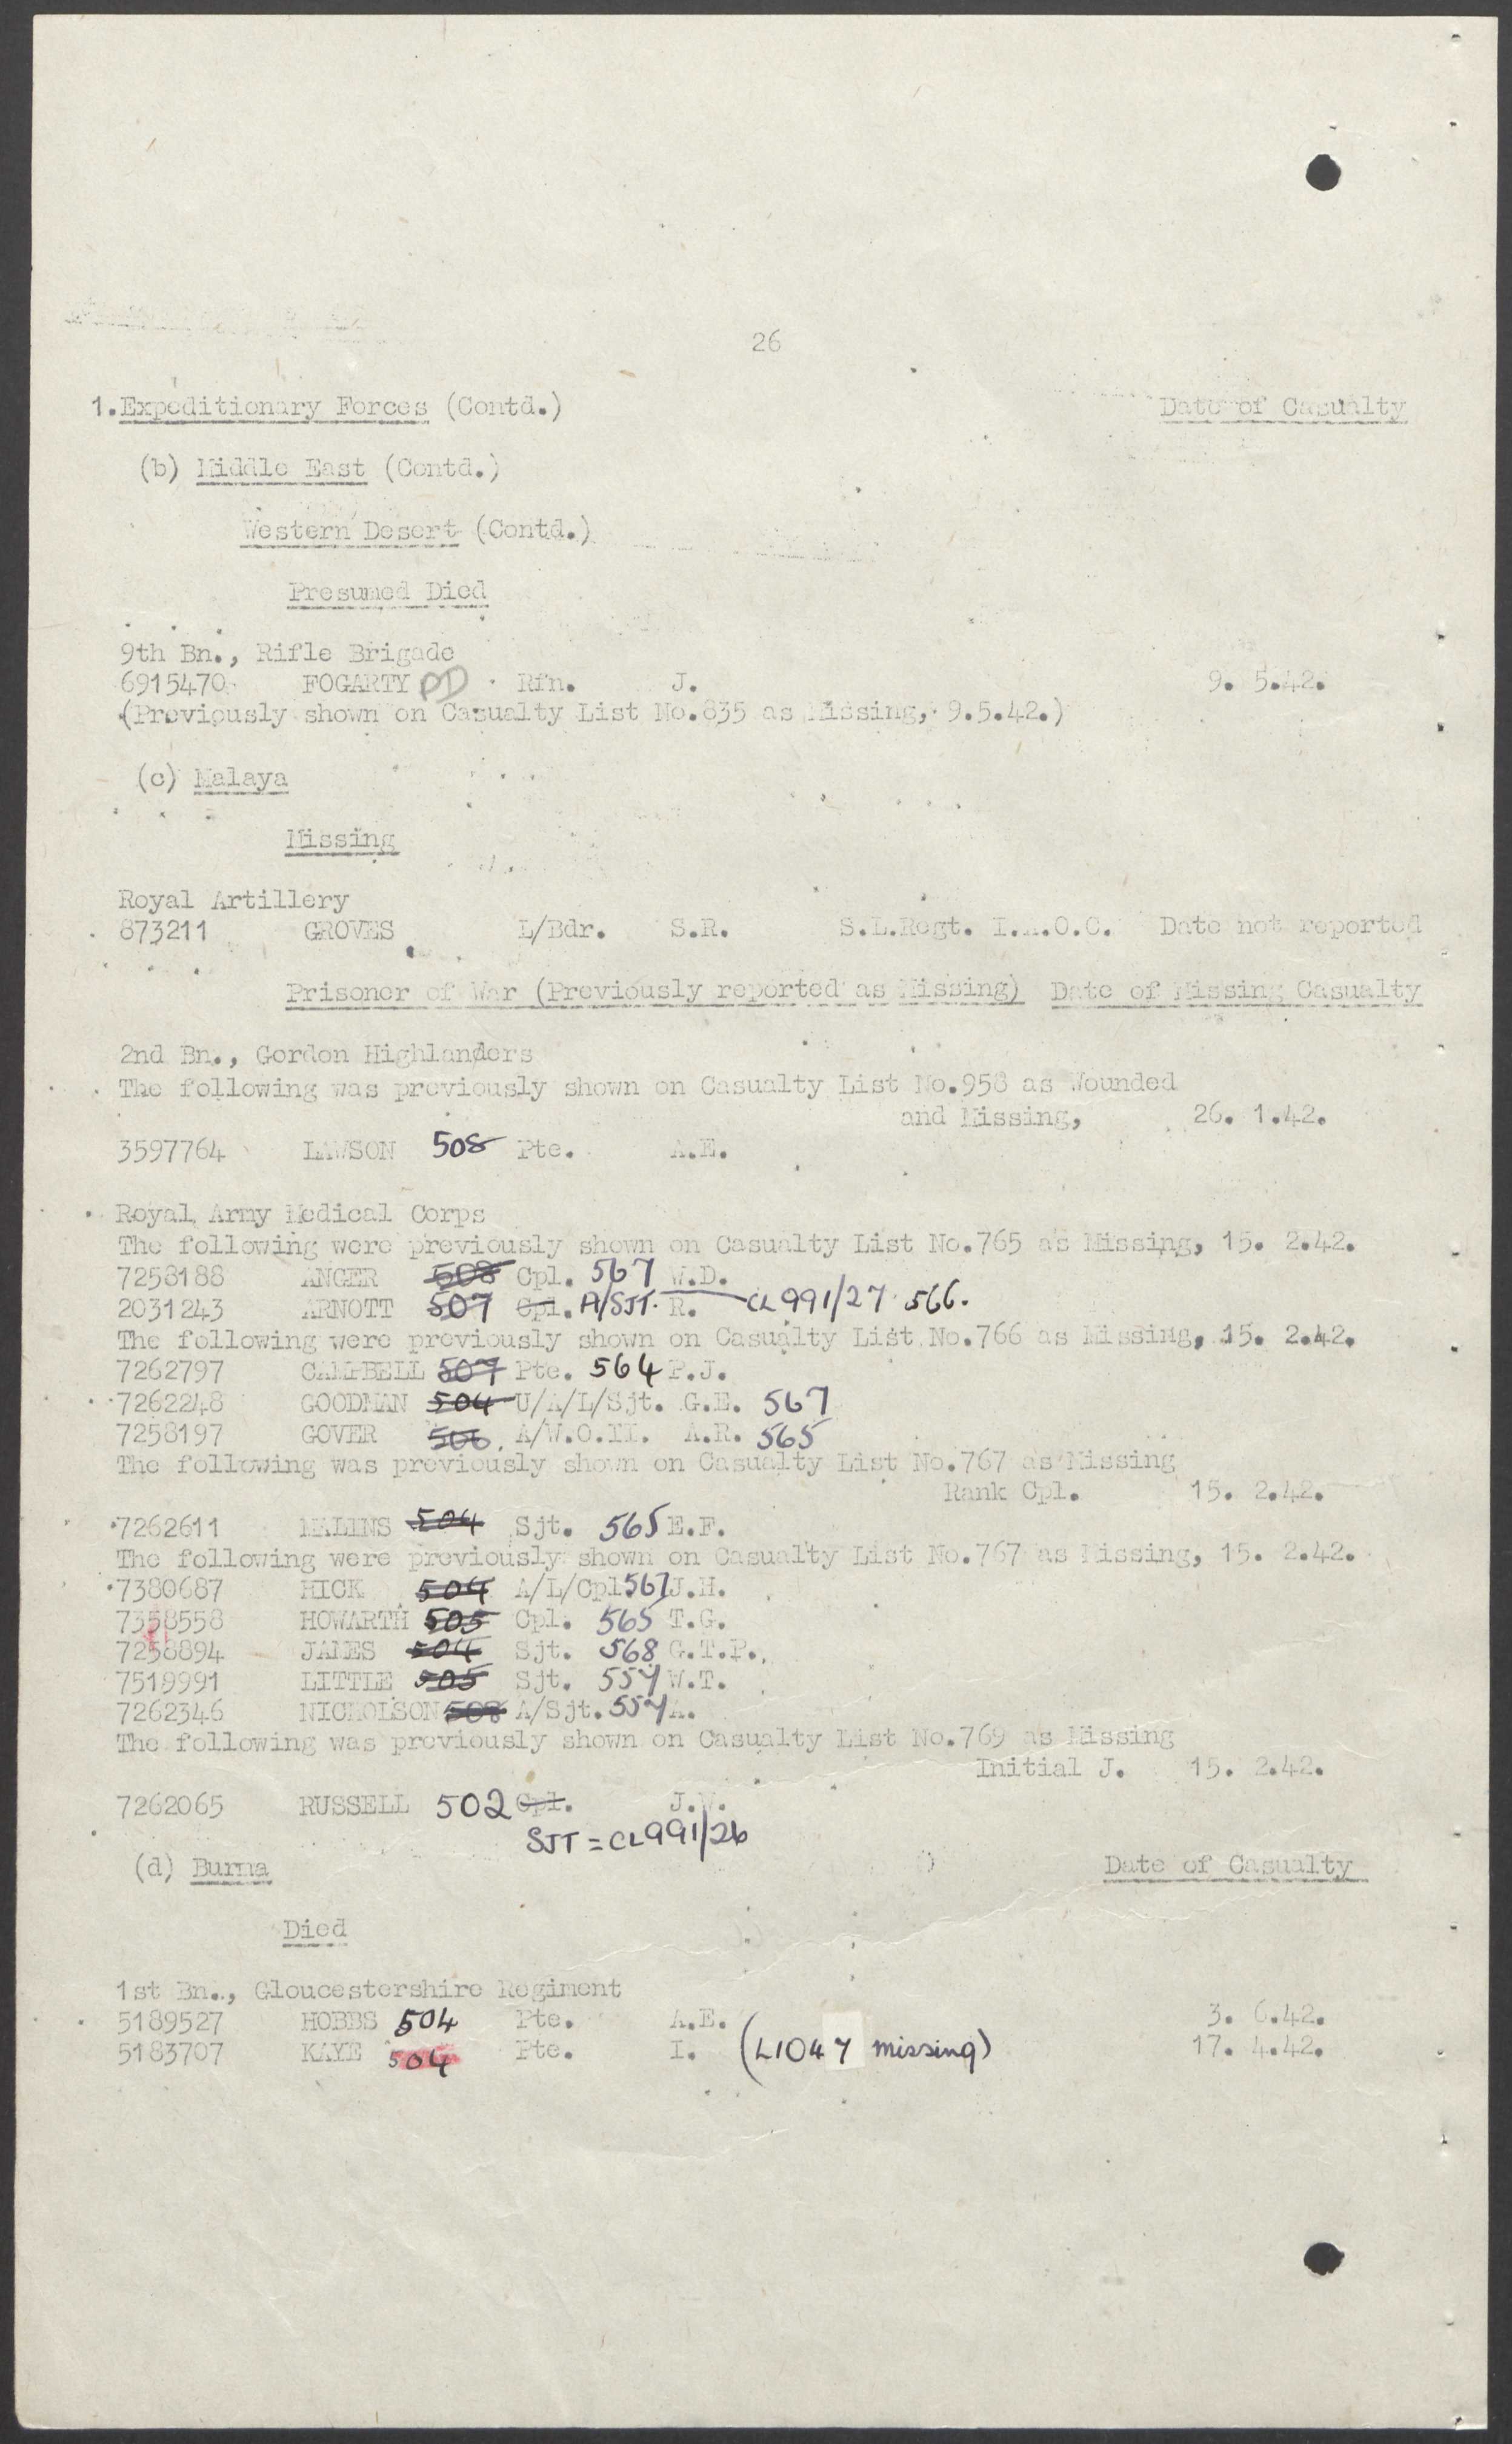 26
1.Expeditionary Forces (Contd.) Date of Casualty
(b) Middle East (Contd.)
Western Desert (Contd.)
Presumed Died
9th Bn., Rifle Brigade
6915470 FOGARTY PD Rfn. J. 9. 5.42.
(Previously shown on Casualty List No.835 as Missing, 9.5.42.)
(c) Malaya
Missing
Royal Artillery
873211 GROVES L/Bdr. S.R. S.L.Regt. I.A.O.C. Date not reported
Prisoner of War (Previously reported as Missing) Date of Missing Casualty
2nd Bn., Gordon Highlanders
The following was previously shown on Casualty List No.958 as Wounded
and Missing, 26. 1.42.
3597764 LAWSON 508 Pte. A.E.
Royal Army Medical Corps
The following were previously shown on Casualty List No.765 as Missing, 15. 2.42.
7258188 ANGER 508 Cpl. 567 W.D.
2031243 ARNOTT 507 Cpl. A/SJT. R. CL991/27 566.
The following were previously shown on Casualty List No.766 as Missing, 15. 2.42.
7262797 CAMPBELL 507 Pte. 564 P.J.
7262248 GOODMAN 504 U/A/L/Sjt. G.E. 567
7258197 GOVER 506. A/W.O.II. A.R. 565
The following was previously shown on Casualty List No.767 as Missing
Rank Cpl. 15. 2.42.
7262611 MALINS 504 Sjt. 565 E.F.
The following were previously shown on Casualty List No.767 as Missing, 15. 2.42.
7380687 HICK 504 A/L/Cpl. 567 J.H.
7358558 HOWARTH 505 Cpl. 565 T.G.
7258894 JAMES 504 Sjt. 568 G.T.P.
7519991 LITTLE 505 Sjt. 557 W.T.
7262346 NICHOLSON 508 A/Sjt. 557 A.
The following was previously shown on Casualty List No.769 as Missing
Initial J. 15. 2.42.
7262065 RUSSELL 502 Cpl. J.W.
SJT = CL991/26
(d) Burma Date of Casualty
Died
1st Bn., Gloucestershire Regiment
5189527 HOBBS 504 Pte. A.E. 3. 6.42.
5183707 KAYE 504 Pte. I. (L1047 missing) 17. 4.42.